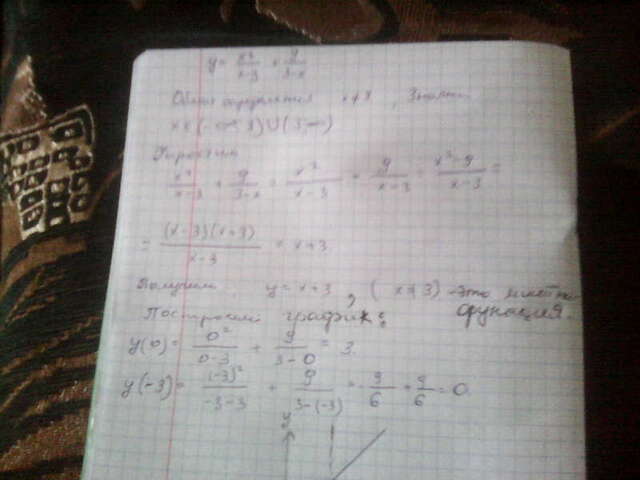 y = x²/(x-3) + 9/(3-x)
Область определения x≠3, Значит
x ∈ (-∞; 3) ∪ (3; ∞)
Упростим
x²/(x-3) + 9/(3-x) = x²/(x-3) - 9/(x-3) = (x²-9)/(x-3) =
= (x-3)(x+3)/(x-3) = x+3
Получим y = x+3, (x≠3) - это линейная функция.
Построим график:
y(0) = 0²/(0-3) + 9/(3-0) = 3.
y(-3) = (-3)²/(-3-3) + 9/(3-(-3)) = -9/6 + 9/6 = 0
y